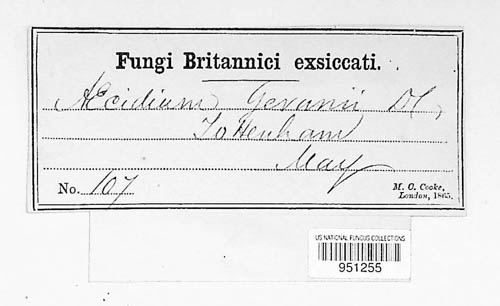 Fungi Britannici exsiccati.
Æcidium Geranii DC,
Tottenham
May
No. 107
M. C. Cooke,
London, 1865.
US NATIONAL FUNGUS COLLECTIONS
951255